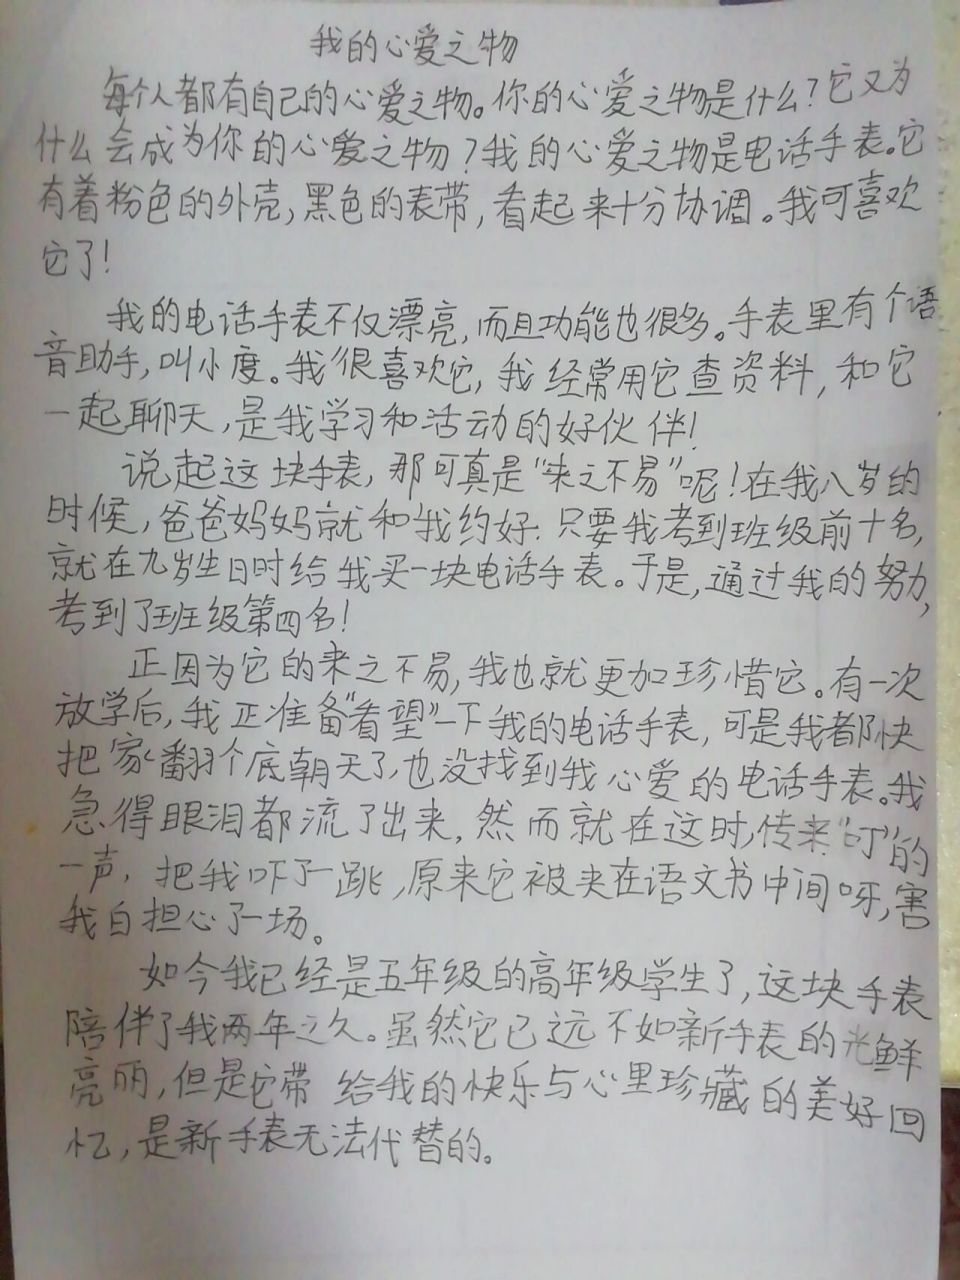 我的心爱之物
每个人都有自己的心爱之物。你的心爱之物是什么？它又为
什么会成为你的心爱之物？我的心爱之物是电话手表。它
有着粉色的外壳，黑色的表带，看起来十分协调。我可喜欢
它了！
我的电话手表不仅漂亮，而且功能也很多。手表里有个语
音助手，叫小度。我很喜欢它，我经常用它查资料，和它
一起聊天，是我学习和活动的好伙伴！
说起这块手表，那可真是“来之不易”呢！在我八岁的
时候，爸爸妈妈就和我约好：只要我考到班级前十名，
就在九岁生日时给我买一块电话手表。于是，通过我的努力，
考到了班级第四名！
正因为它的来之不易，我也就更加珍惜它。有一次
放学后，我正准备“看望”一下我的电话手表，可是我都快
把家翻个底朝天了，也没找到我心爱的电话手表。我
急得眼泪都流了出来，然而就在这时，传来“叮”的
一声，把我吓了一跳，原来它被夹在语文书中间呀，害
我白担心了一场。
如今我已经是五年级的高年级学生了，这块手表
陪伴了我两年之久。虽然它已远不如新手表的光鲜
亮丽，但是它带给我的快乐与心里珍藏的美好回
忆，是新手表无法代替的。